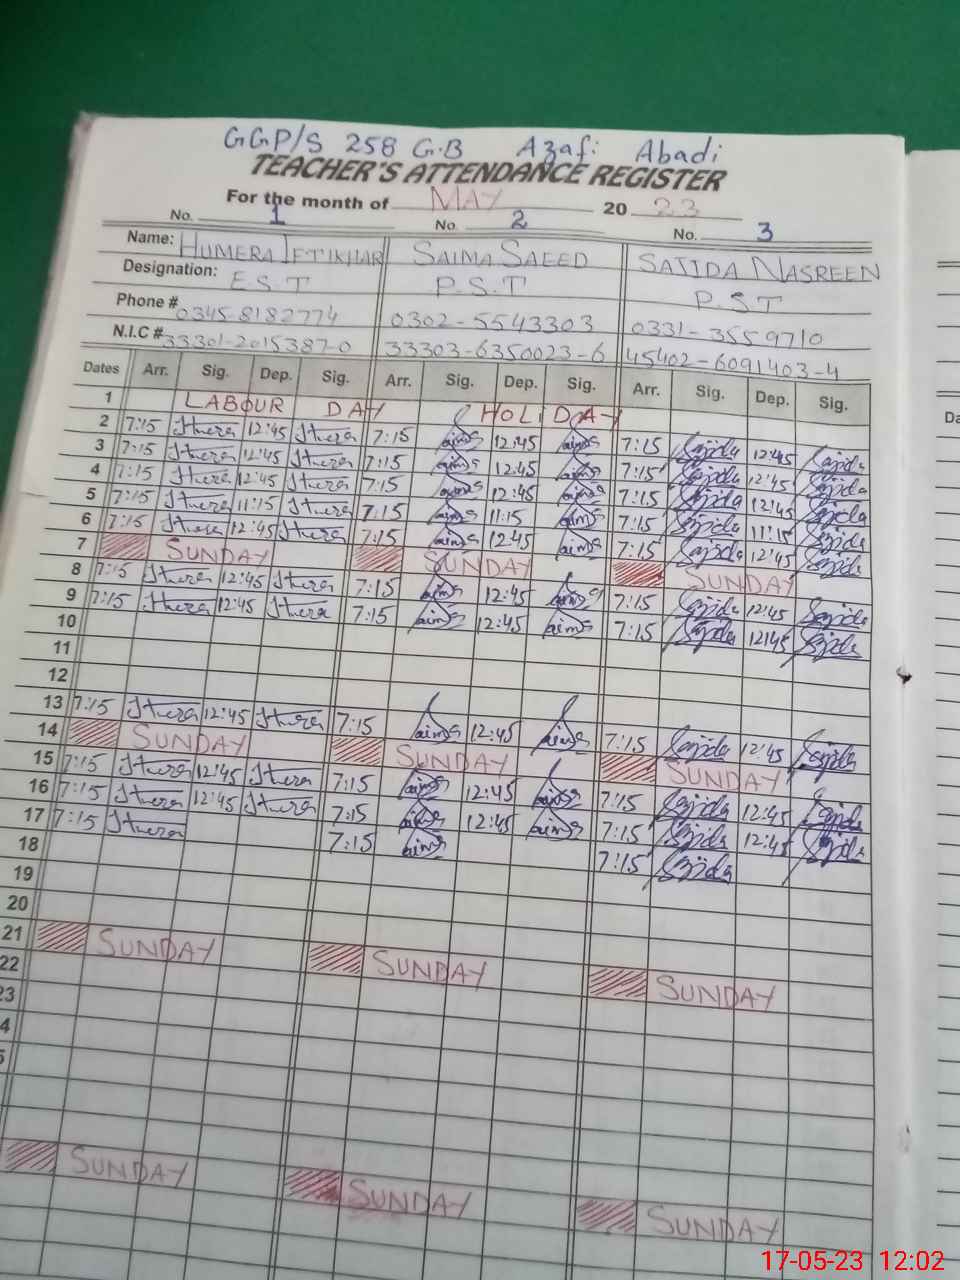 GGP/S 258 G.B Azafi Abadi
TEACHER'S ATTENDANCE REGISTER
For the month of MAY 20 23
No. 1 No. 2 No. 3
Name: HUMERA IFTIKHAR SAIMA SAEED SAJIDA NASREEN
Designation: E.S.T P.S.T P.S.T
Phone # 0345-8182774 0302-5543303 0331-3559710
N.I.C # 33301-2015387-0 33303-6350023-6 45402-6091403-4
Dates Arr. Sig. Dep. Sig. Arr. Sig. Dep. Sig. Arr. Sig. Dep. Sig.
1 LABOUR DAY HOLIDAY
2 7:15 12:45 7:15 12:45 7:15 Sajida 12:45 Sajida
3 7:15 12:45 7:15 12:45 7:15 Sajida 12:45 Sajida
4 7:15 12:45 7:15 12:45 7:15 Sajida 12:45 Sajida
5 7:15 11:15 7:15 11:15 7:15 Sajida 11:15 Sajida
6 7:15 12:45 7:15 12:45 7:15 Sajida 12:45 Sajida
7 SUNDAY SUNDAY SUNDAY
8 7:15 12:45 7:15 12:45 7:15 Sajida 12:45 Sajida
9 7:15 12:45 7:15 12:45 7:15 Sajida 12:45 Sajida
10
11
12
13 7:15 12:45 7:15 12:45 7:15 Sajida 12:45 Sajida
14 SUNDAY SUNDAY SUNDAY
15 7:15 12:45 7:15 12:45 7:15 Sajida 12:45 Sajida
16 7:15 12:45 7:15 12:45 7:15 Sajida 12:45 Sajida
17 7:15 7:15 7:15 Sajida
18
19
20
21 SUNDAY SUNDAY SUNDAY
22
23
4
5
SUNDAY SUNDAY SUNDAY
17-05-23 12:02